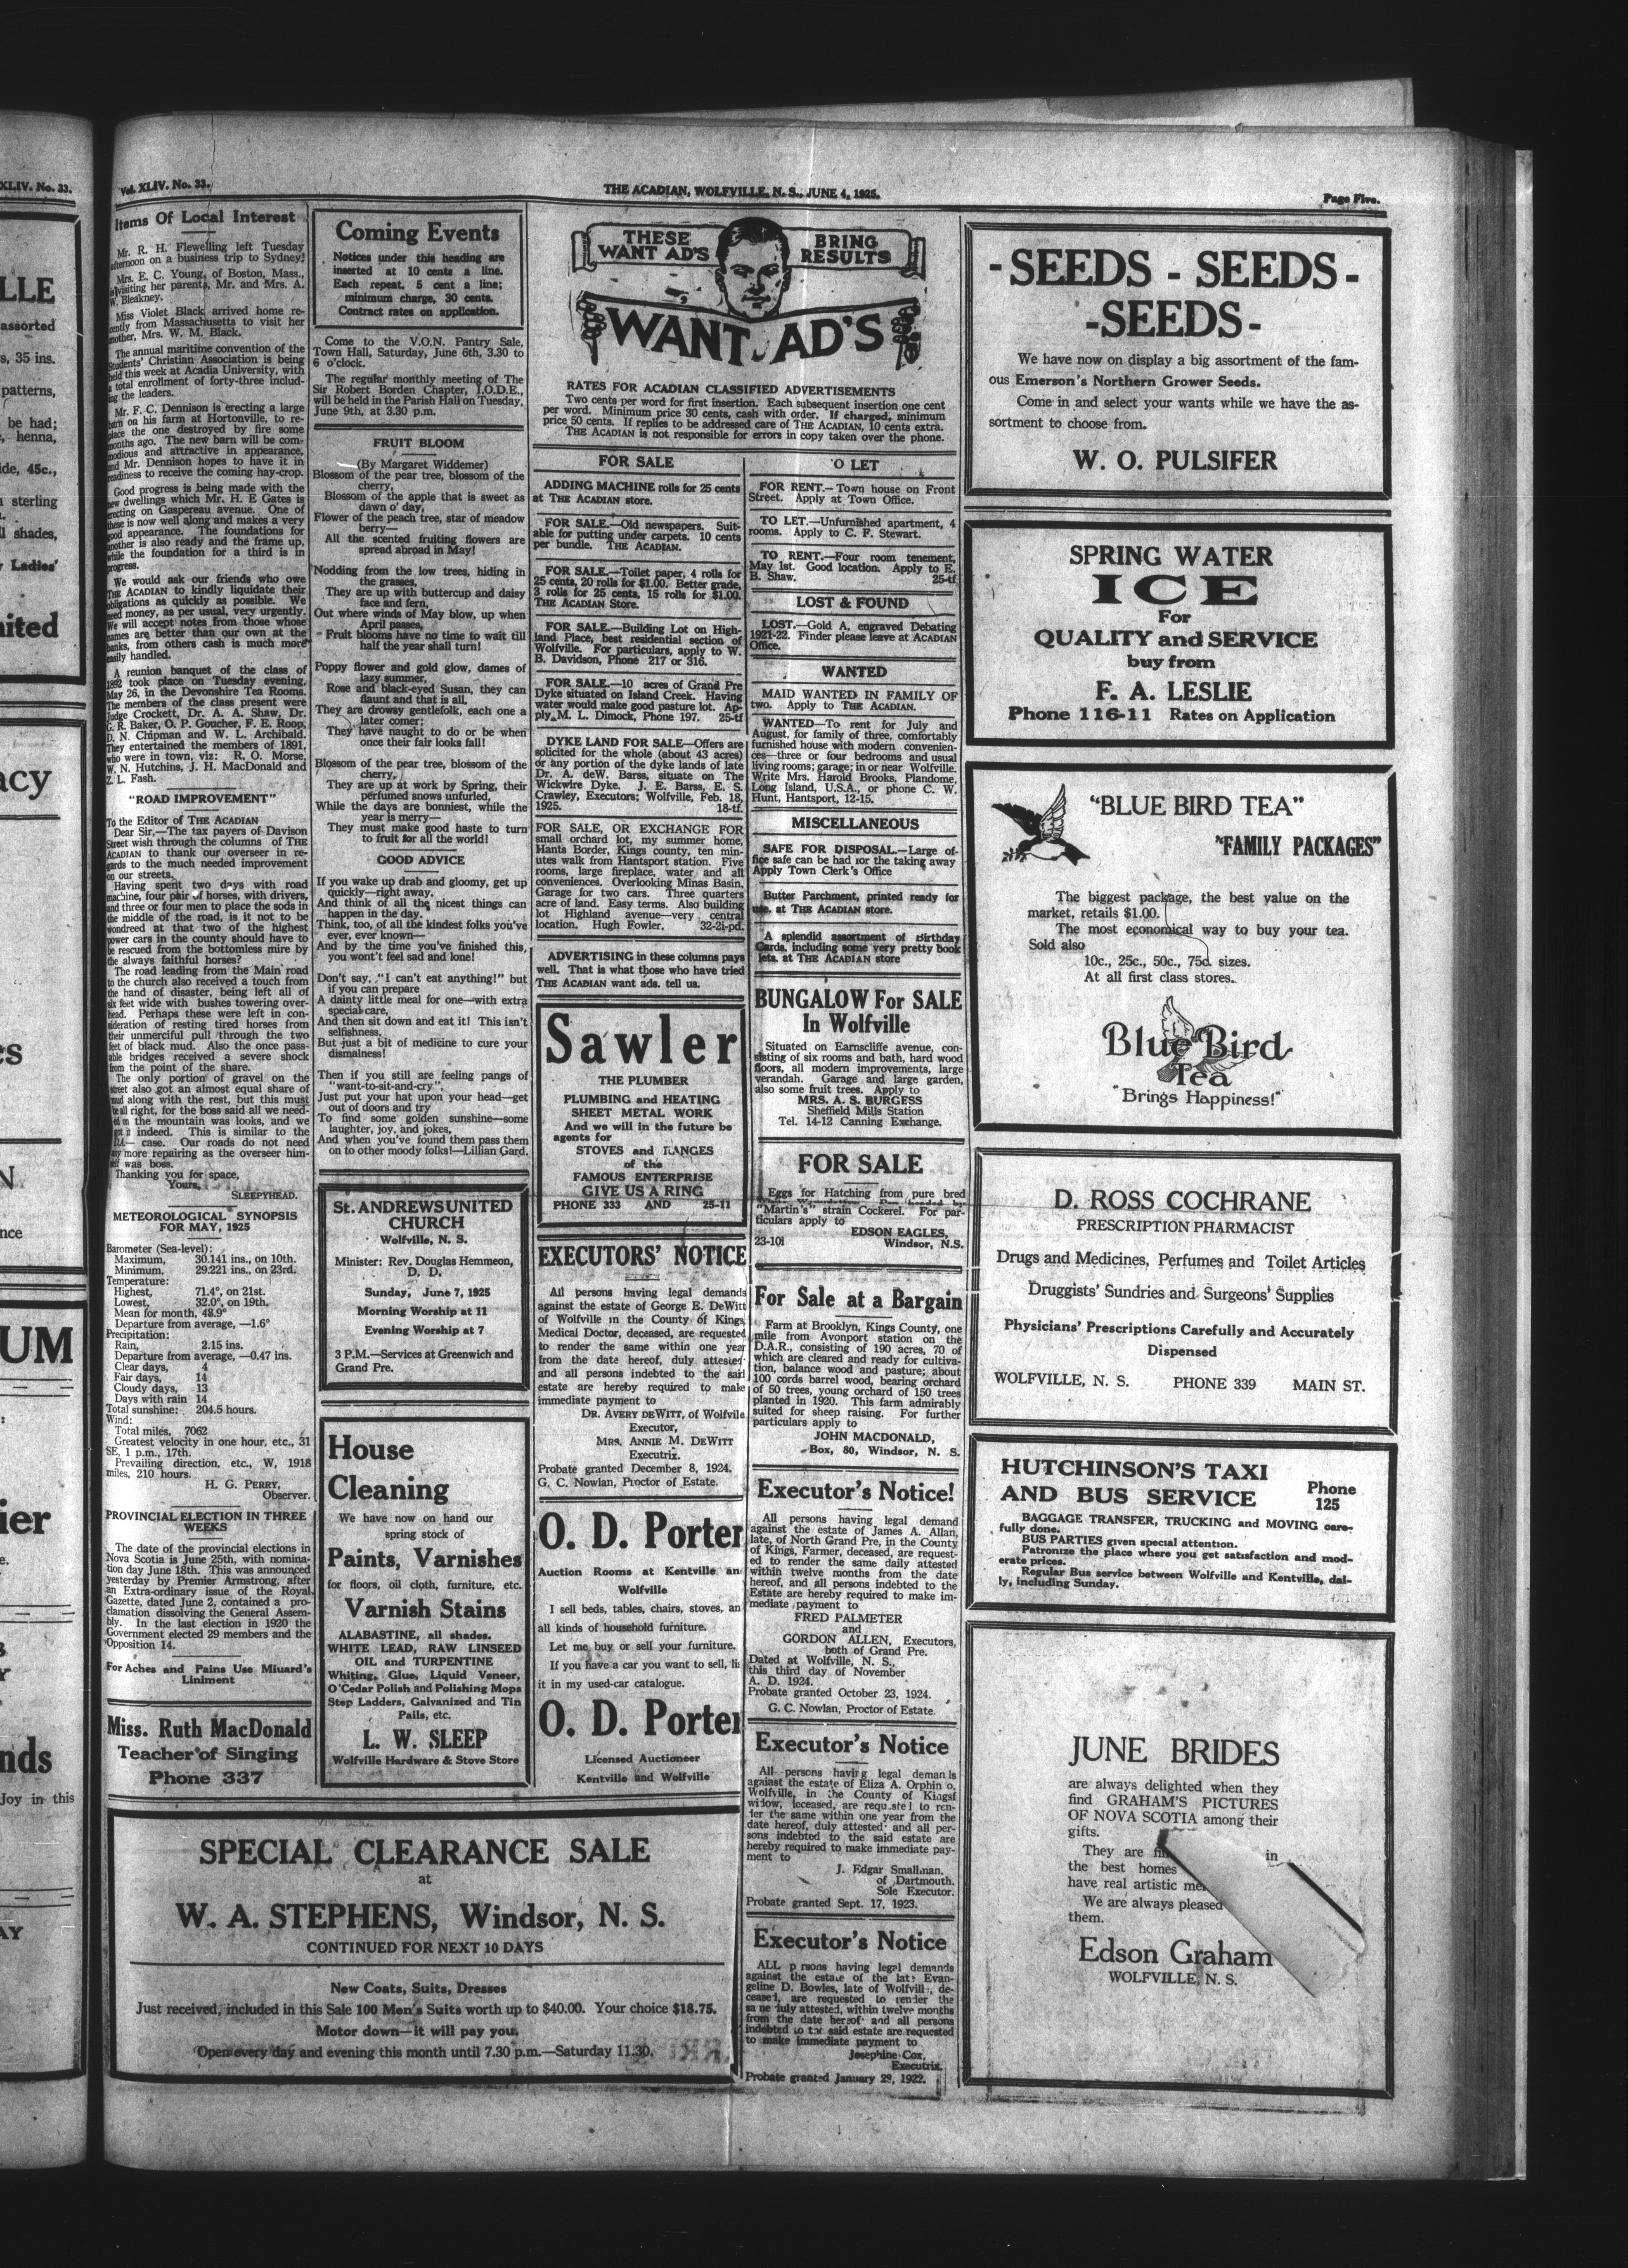 XLIV. No. 33.
LLE
assorted
s, 35 ins.
patterns,
be had;
henna,
ide, 45c.,
sterling
l shades,
Ladies'
nited
acy
es
N
nce
UM
ier
nds
Joy in this
Vol. XLIV. No. 33.
THE ACADIAN, WOLFVILLE, N. S., JUNE 4, 1925.
Page Five.
Items Of Local Interest
Mr. R. H. Flewelling left Tuesday
afternoon on a business trip to Sydney!
Mrs. E. C. Young, of Boston, Mass.,
is visiting her parents, Mr. and Mrs. A.
W. Bleakney.
Miss Violet Black arrived home re-
cently from Massachusetts to visit her
mother, Mrs. W. M. Black.
The annual maritime convention of the
Students' Christian Association is being
held this week at Acadia University, with
a total enrollment of forty-three includ-
ing the leaders.
Mr. F. C. Dennison is erecting a large
barn on his farm at Hortonville, to re-
place the one destroyed by fire some
months ago. The new barn will be com-
modious and attractive in appearance,
and Mr. Dennison hopes to have it in
readiness to receive the coming hay-crop.
Good progress is being made with the
new dwellings which Mr. H. E Gates is
erecting on Gaspereau avenue. One of
these is now well along and makes a very
good appearance. The foundations for
another is also ready and the frame up,
while the foundation for a third is in
progress.
We would ask our friends who owe
THE ACADIAN to kindly liquidate their
obligations as quickly as possible. We
need money, as per usual, very urgently.
We will accept notes from those whose
names are better than our own at the
banks, from others cash is much more
easily handled.
A reunion banquet of the class of
1892 took place on Tuesday evening,
May 26, in the Devonshire Tea Rooms.
The members of the class present were
Judge Crockett, Dr. A. A. Shaw, Dr.
G. R. Baker, O. P. Goucher, F. E. Roop,
D. N. Chipman and W. L. Archibald.
They entertained the members of 1891,
who were in town, viz: R. O. Morse,
W. N. Hutchins, J. H. MacDonald and
Z. L. Fash.
"ROAD IMPROVEMENT"
To the Editor of THE ACADIAN
Dear Sir,—The tax payers of Davison
Street wish through the columns of THE
ACADIAN to thank our overseer in re-
gards to the much needed improvement
on our streets.
Having spent two days with road
machine, four pair of horses, with drivers,
and three or four men to place the sods in
the middle of the road, is it not to be
wondreed at that two of the highest
power cars in the county should have to
be rescued from the bottomless mire by
the always faithful horses?
The road leading from the Main road
to the church also received a touch from
the hand of disaster, being left all of
six feet wide with bushes towering over-
head. Perhaps these were left in con-
sideration of resting tired horses from
their unmerciful pull through the two
feet of black mud. Also the once pass-
able bridges received a severe shock
from the point of the share.
The only portion of gravel on the
street also got an almost equal share of
mud along with the rest, but this must
be all right, for the boss said all we need-
ed on the mountain was looks, and we
got it indeed. This is similar to the
case. Our roads do not need
any more repairing as the overseer him-
self was boss.
Thanking you for space,
Yours,
SLEEPYHEAD.
METEOROLOGICAL SYNOPSIS
FOR MAY, 1925
Barometer (Sea-level):
Maximum, 30.141 ins., on 10th.
Minimum, 29.221 ins., on 23rd.
Temperature:
Highest, 71.4°, on 21st.
Lowest, 32.0°, on 19th.
Mean for month, 48.9°
Departure from average, —1.6°
Precipitation:
Rain, 2.15 ins.
Departure from average, —0.47 ins.
Clear days, 4
Fair days, 14
Cloudy days, 13
Days with rain 14
Total sunshine: 204.5 hours.
Wind:
Total miles, 7062
Greatest velocity in one hour, etc., 31
SE, 1 p.m., 17th.
Prevailing direction, etc., W, 1918
miles, 210 hours.
H. G. PERRY,
Observer.
PROVINCIAL ELECTION IN THREE
WEEKS
The date of the provincial elections in
Nova Scotia is June 25th, with nomina-
tion day June 18th. This was announced
yesterday by Premier Armstrong, after
an Extra-ordinary issue of the Royal
Gazette, dated June 2, contained a pro-
clamation dissolving the General Assem-
bly. In the last election in 1920 the
Government elected 29 members and the
Opposition 14.
For Aches and Pains Use Minard's
Liniment
Miss. Ruth MacDonald
Teacher of Singing
Phone 337
Coming Events
Notices under this heading are
inserted at 10 cents a line.
Each repeat, 5 cent a line;
minimum charge, 30 cents.
Contract rates on application.
Come to the V.O.N. Pantry Sale,
Town Hall, Saturday, June 6th, 3.30 to
6 o'clock.
The regular monthly meeting of The
Sir Robert Borden Chapter, I.O.D.E.,
will be held in the Parish Hall on Tuesday,
June 9th, at 3.30 p.m.
FRUIT BLOOM
(By Margaret Widdemer)
Blossom of the pear tree, blossom of the
cherry,
Blossom of the apple that is sweet as
dawn o' day,
Flower of the peach tree, star of meadow
berry—
All the scented fruiting flowers are
spread abroad in May!
Nodding from the low trees, hiding in
the grasses,
They are up with buttercup and daisy
face and fern,
Out where winds of May blow, up when
April passes,
Fruit blooms have no time to wait till
half the year shall turn!
Poppy flower and gold glow, dames of
lazy summer,
Rose and black-eyed Susan, they can
flaunt and that is all,
They are drowsy gentlefolk, each one a
later comer;
They have naught to do or be when
once their fair looks fall!
Blossom of the pear tree, blossom of the
cherry,
They are up at work by Spring, their
perfumed snows unfurled,
While the days are bonniest, while the
year is merry—
They must make good haste to turn
to fruit for all the world!
GOOD ADVICE
If you wake up drab and gloomy, get up
quickly—right away.
And think of all the nicest things can
happen in the day.
Think, too, of all the kindest folks you've
ever, ever known—
And by the time you've finished this,
you won't feel sad and lone!
Don't say, "I can't eat anything!" but
if you can prepare
A dainty little meal for one—with extra
special care,
And then sit down and eat it! This isn't
selfishness,
But just a bit of medicine to cure your
dismalness!
Then if you still are feeling pangs of
"want-to-sit-and-cry",
Just put your hat upon your head—get
out of doors and try
To find some golden sunshine—some
laughter, joy, and jokes,
And when you've found them pass them
on to other moody folks!—Lillian Gard.
St. ANDREWS UNITED
CHURCH
Wolfville, N. S.
Minister: Rev. Douglas Hemmeon,
D. D.
Sunday, June 7, 1925
Morning Worship at 11
Evening Worship at 7
3 P.M.—Services at Greenwich and
Grand Pre.
House
Cleaning
We have now on hand our
spring stock of
Paints, Varnishes
for floors, oil cloth, furniture, etc.
Varnish Stains
ALABASTINE, all shades.
WHITE LEAD, RAW LINSEED
OIL and TURPENTINE
Whiting, Glue, Liquid Veneer,
O'Cedar Polish and Polishing Mops
Step Ladders, Galvanized and Tin
Pails, etc.
L. W. SLEEP
Wolfville Hardware & Stove Store
SPECIAL CLEARANCE SALE
at
W. A. STEPHENS, Windsor, N. S.
CONTINUED FOR NEXT 10 DAYS
New Coats, Suits, Dresses
Just received, included in this Sale 100 Men's Suits worth up to $40.00. Your choice $18.75.
Motor down—it will pay you.
Open every day and evening this month until 7.30 p.m.—Saturday 11.30.
THESE
WANT AD'S
BRING
RESULTS
WANT AD'S
RATES FOR ACADIAN CLASSIFIED ADVERTISEMENTS
Two cents per word for first insertion. Each subsequent insertion one cent
per word. Minimum price 30 cents, cash with order. If charged, minimum
price 50 cents. If replies to be addressed care of THE ACADIAN, 10 cents extra.
THE ACADIAN is not responsible for errors in copy taken over the phone.
FOR SALE
ADDING MACHINE rolls for 25 cents
at THE ACADIAN store.
FOR SALE.—Old newspapers. Suit-
able for putting under carpets. 10 cents
per bundle. THE ACADIAN.
FOR SALE.—Toilet paper, 4 rolls for
25 cents, 20 rolls for $1.00. Better grade,
3 rolls for 25 cents, 15 rolls for $1.00.
THE ACADIAN Store.
FOR SALE.—Building Lot on High-
land Place, best residential section of
Wolfville. For particulars, apply to W.
B. Davidson, Phone 217 or 316.
FOR SALE.—10 acres of Grand Pre
Dyke situated on Island Creek. Having
water would make good pasture lot. Ap-
ply M. L. Dimock, Phone 197. 25-tf
DYKE LAND FOR SALE—Offers are
solicited for the whole (about 43 acres)
or any portion of the dyke lands of late
Dr. A. deW. Barss, situate on The
Wickwire Dyke. J. E. Barss, E. S.
Crawley, Executors; Wolfville, Feb. 18,
1925. 18-tf.
FOR SALE, OR EXCHANGE FOR
small orchard lot, my summer home,
Hants Border, Kings county, ten min-
utes walk from Hantsport station. Five
rooms, large fireplace, water and all
conveniences. Overlooking Minas Basin.
Garage for two cars. Three quarters
acre of land. Easy terms. Also building
lot Highland avenue—very central
location. Hugh Fowler. 32-2i-pd.
ADVERTISING in these columns pays
well. That is what those who have tried
THE ACADIAN want ads. tell us.
Sawler
THE PLUMBER
PLUMBING and HEATING
SHEET METAL WORK
And we will in the future be
agents for
STOVES and RANGES
of the
FAMOUS ENTERPRISE
GIVE US A RING
PHONE 333 AND 25-11
EXECUTORS' NOTICE
All persons having legal demands
against the estate of George E. DeWitt
of Wolfville in the County of Kings,
Medical Doctor, deceased, are requested
to render the same within one year
from the date hereof, duly attested
and all persons indebted to the said
estate are hereby required to make
immediate payment to
DR. AVERY DEWITT, of Wolfville
Executor,
MRS. ANNIE M. DEWITT
Executrix.
Probate granted December 8, 1924.
G. C. Nowlan, Proctor of Estate.
O. D. Porter
Auction Rooms at Kentville an
Wolfville
I sell beds, tables, chairs, stoves, an
all kinds of household furniture.
Let me buy or sell your furniture.
If you have a car you want to sell, li
it in my used-car catalogue.
O. D. Porter
Licensed Auctioneer
Kentville and Wolfville
'O LET
FOR RENT.—Town house on Front
Street. Apply at Town Office.
TO LET.—Unfurnished apartment, 4
rooms. Apply to C. F. Stewart.
TO RENT.—Four room tenement,
May 1st. Good location. Apply to E.
B. Shaw. 25-tf
LOST & FOUND
LOST.—Gold A, engraved Debating
1921-22. Finder please leave at ACADIAN
Office.
WANTED
MAID WANTED IN FAMILY OF
two. Apply to THE ACADIAN.
WANTED—To rent for July and
August, for family of three, comfortably
furnished house with modern convenien-
ces—three or four bedrooms and usual
living rooms; garage; in or near Wolfville.
Write Mrs. Harold Brooks, Plandome,
Long Island, U.S.A., or phone C. W.
Hunt, Hantsport, 12-15.
MISCELLANEOUS
SAFE FOR DISPOSAL.—Large of-
fice safe can be had for the taking away
Apply Town Clerk's Office
Butter Parchment, printed ready for
use, at THE ACADIAN store.
A splendid assortment of Birthday
Cards, including some very pretty book
lets, at THE ACADIAN store
BUNGALOW For SALE
In Wolfville
Situated on Earnscliffe avenue, con-
sisting of six rooms and bath, hard wood
floors, all modern improvements, large
verandah. Garage and large garden,
also some fruit trees. Apply to
MRS. A. S. BURGESS
Sheffield Mills Station
Tel. 14-12 Canning Exchange.
FOR SALE
Eggs for Hatching from pure bred
"Martin's" strain Cockerel. For par-
ticulars apply to
EDSON EAGLES,
23-10i Windsor, N.S.
For Sale at a Bargain
Farm at Brooklyn, Kings County, one
mile from Avonport station on the
D.A.R., consisting of 190 acres, 70 of
which are cleared and ready for cultiva-
tion, balance wood and pasture; about
100 cords barrel wood, bearing orchard
of 50 trees, young orchard of 150 trees
planted in 1920. This farm admirably
suited for sheep raising. For further
particulars apply to
JOHN MACDONALD,
Box, 80, Windsor, N. S.
Executor's Notice!
All persons having legal demand
against the estate of James A. Allan,
late, of North Grand Pre, in the County
of Kings, Farmer, deceased, are request-
ed to render the same daily attested
within twelve months from the date
hereof, and all persons indebted to the
Estate are hereby required to make im-
mediate payment to
FRED PALMETER
and
GORDON ALLEN, Executors,
both of Grand Pre.
Dated at Wolfville, N. S.,
this third day of November
A. D. 1924.
Probate granted October 23, 1924.
G. C. Nowlan, Proctor of Estate.
Executor's Notice
All persons having legal demands
against the estate of Eliza A. Orphin o,
Wolfville, in the County of Kingsf
widow, deceased, are requested to ren-
der the same within one year from the
date hereof, duly attested and all per-
sons indebted to the said estate are
hereby required to make immediate pay-
ment to
J. Edgar Smallman,
of Dartmouth.
Sole Executor.
Probate granted Sept. 17, 1923.
Executor's Notice
ALL p rsons having legal demands
against the estate of the late Evan-
geline D. Bowles, late of Wolfville, de-
ceased, are requested to render the
same duly attested, within twelve months
from the date hereof and all persons
indebted to the said estate are requested
to make immediate payment to
Josephine Cox,
Executrix.
Probate granted January 29, 1922.
- SEEDS - SEEDS -
-SEEDS-
We have now on display a big assortment of the fam-
ous Emerson's Northern Grower Seeds.
Come in and select your wants while we have the as-
sortment to choose from.
W. O. PULSIFER
SPRING WATER
ICE
For
QUALITY and SERVICE
buy from
F. A. LESLIE
Phone 116-11 Rates on Application
"BLUE BIRD TEA"
"FAMILY PACKAGES"
The biggest package, the best value on the
market, retails $1.00.
The most economical way to buy your tea.
Sold also
10c., 25c., 50c., 75c. sizes.
At all first class stores.
Blue Bird
Tea
"Brings Happiness!"
D. ROSS COCHRANE
PRESCRIPTION PHARMACIST
Drugs and Medicines, Perfumes and Toilet Articles
Druggists' Sundries and Surgeons' Supplies
Physicians' Prescriptions Carefully and Accurately
Dispensed
WOLFVILLE, N. S. PHONE 339 MAIN ST.
HUTCHINSON'S TAXI
AND BUS SERVICE
Phone
125
BAGGAGE TRANSFER, TRUCKING and MOVING care-
fully done.
BUS PARTIES given special attention.
Patronize the place where you get satisfaction and mod-
erate prices.
Regular Bus service between Wolfville and Kentville, dai-
ly, including Sunday.
JUNE BRIDES
are always delighted when they
find GRAHAM'S PICTURES
OF NOVA SCOTIA among their
gifts.
They are in
the best homes
have real artistic
We are always pleased
them.
Edson Graham
WOLFVILLE, N. S.